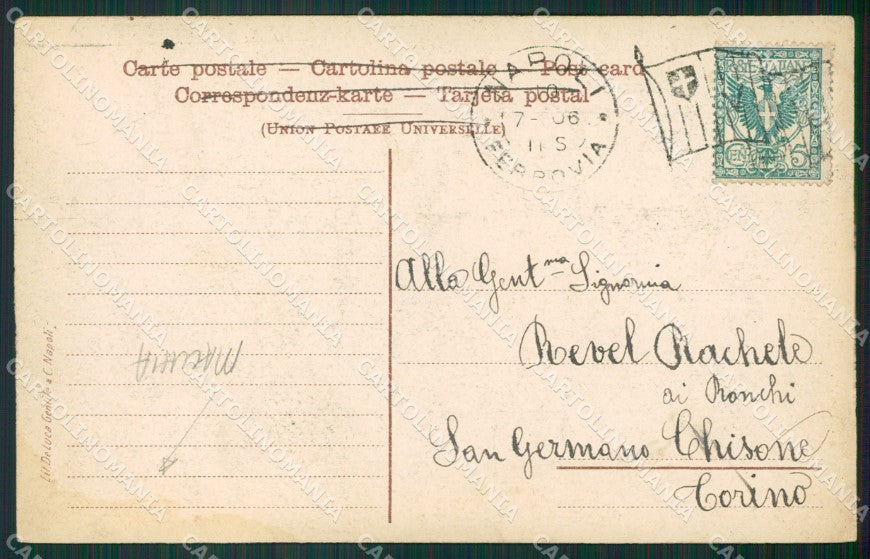 Carte postale — Cartolina postale — Post card
Correspondenz-karte — Tarjeta postal
(UNION POSTALE UNIVERSELLE)
NAPOLI
10
7- 06
11 S
FERROVIA
POSTE ITALIANE
CENTESIMI 5
Alla Gent.ma Signorina
Revel Rachele
ai Ronchi
San Germano Chisone
Torino
MACCHIA
Ed. De Luca Gentile e C. Napoli
CARTOLINOMANIA